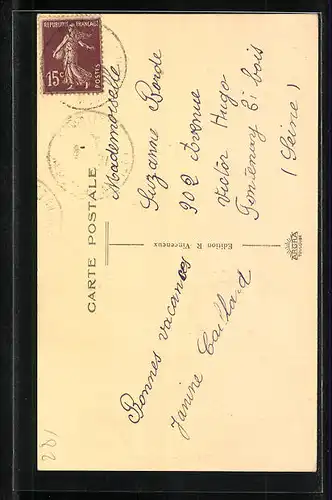 REPUBLIQUE FRANÇAISE
15c
POSTES
CARTE POSTALE
Bonnes vacances
Janine Caillard
Edition R. Viceneux
Mademoiselle
Suzanne Borde
302 Avenue
Victor Hugo
Fontenay s/ bois
(Seine)
281